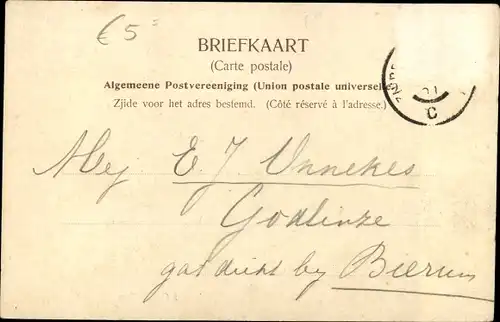 € 5
BRIEFKAART
(Carte postale)
Algemeene Postvereeniging (Union postale universel
Zijde voor het adres bestemd. (Côté réservé à l'adresse.)
C
Mej E. J. Unnekes
Godlinze
by Bierum